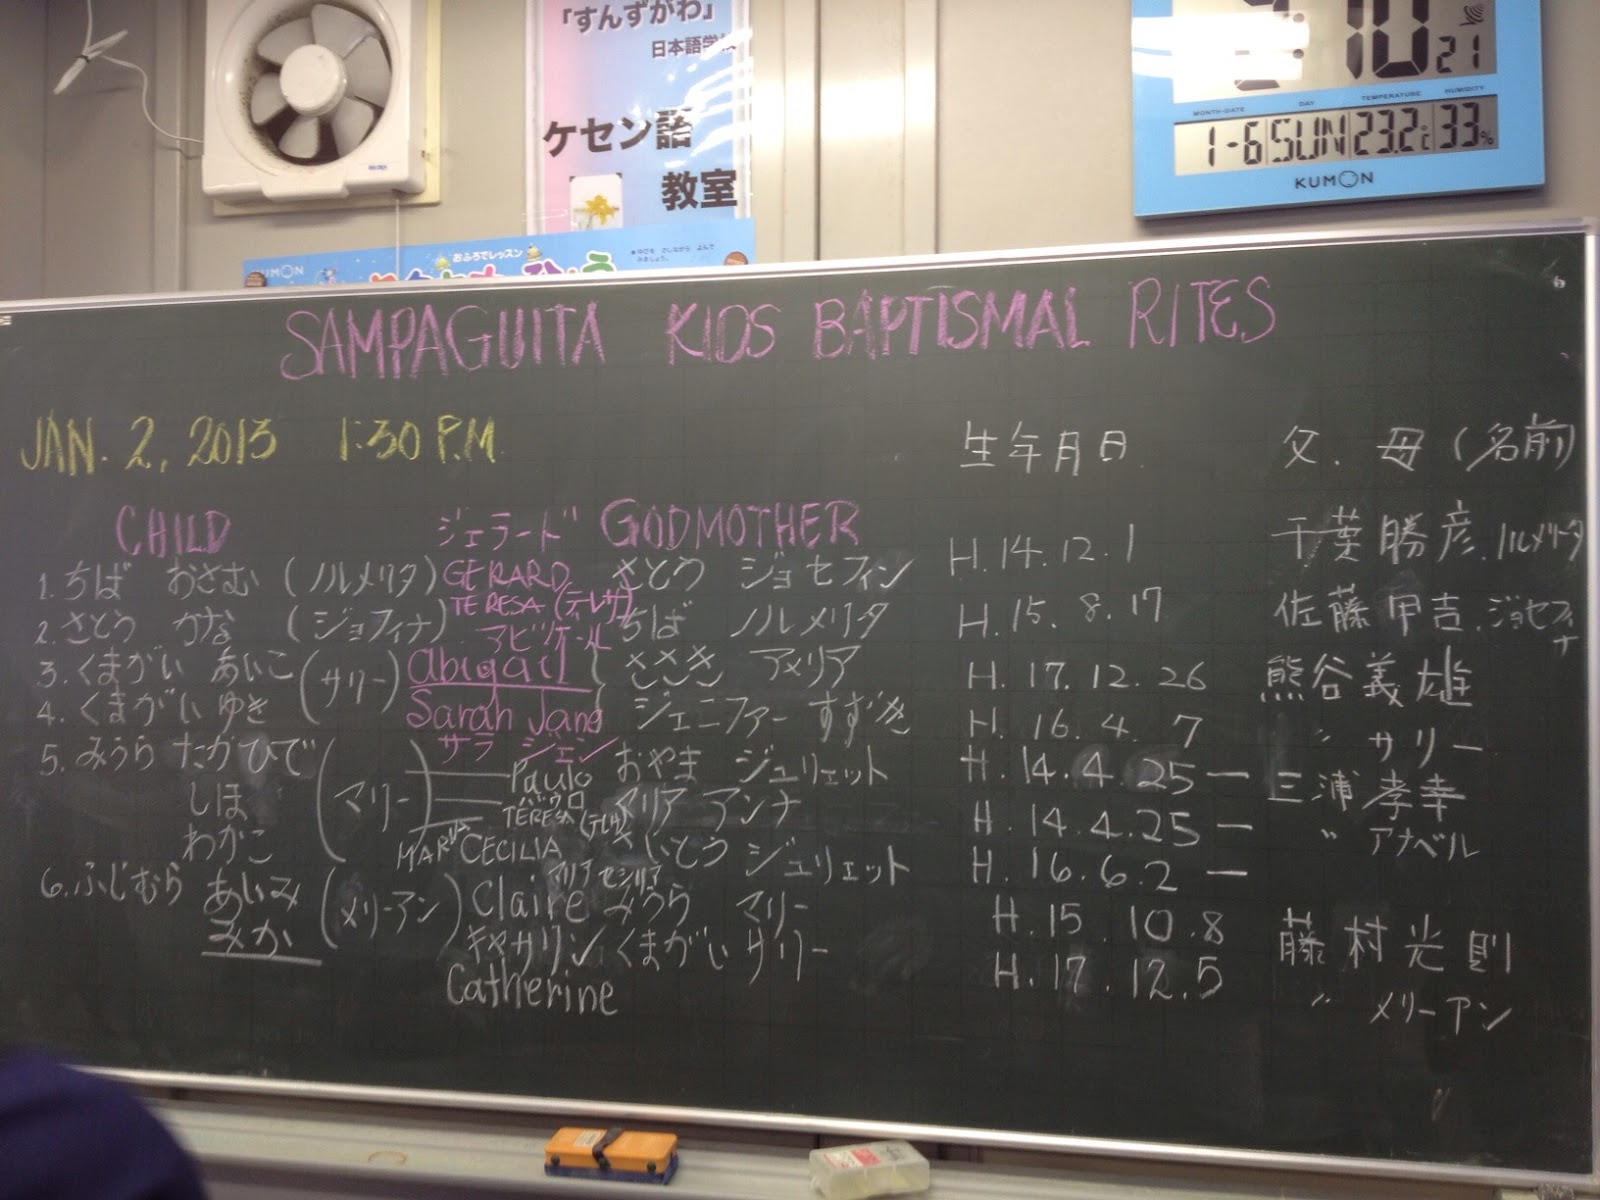 「すんずがわ」
日本語学校
ケセン語
教室
10 21
MONTH-DATE DAY TEMPERATURE HUMIDITY
1-6 SUN 23.2℃ 33%
KUMON
KUMON おふろでレッスン
SAMPAGUITA KIDS BAPTISMAL RITES
JAN. 2, 2013 1:30 P.M. 生年月日. 父.母(名前)
CHILD ジェラード GODMOTHER
1. ちば おさむ (ノルメリタ) GERARD さとう ジョセフィン H.14.12.1 千葉勝彦.ノルメリタ
TERESA (テレサ)
2. さとう かな (ジョフィナ) ちば ノルメリタ H.15.8.17 佐藤甲吉.ジョセフィナ
アビゲール
3. くまがい あいこ (サリー) Abigail ささき アメリア H.17.12.26 熊谷義雄
4. くまがい ゆき Sarah Jane ジェニファー すずき H.16.4.7 〃 サリー
サラ ジェン
5. みうら たかひで (マリー) Paulo おやま ジュリェット H.14.4.25 ー 三浦孝幸
パウロ
しほ TERESA (テレサ) マリア アンナ H.14.4.25 ー 〃 アナベル
わかこ MARIA CECILIA さいとう ジュリェット H.16.6.2 ー
マリア セシリア
6. ふじむら あいみ (メリーアン) Claire みうら マリー H.15.10.8 藤村光則
みか キャサリン くまがい サリー H.17.12.5 〃 メリーアン
Catherine